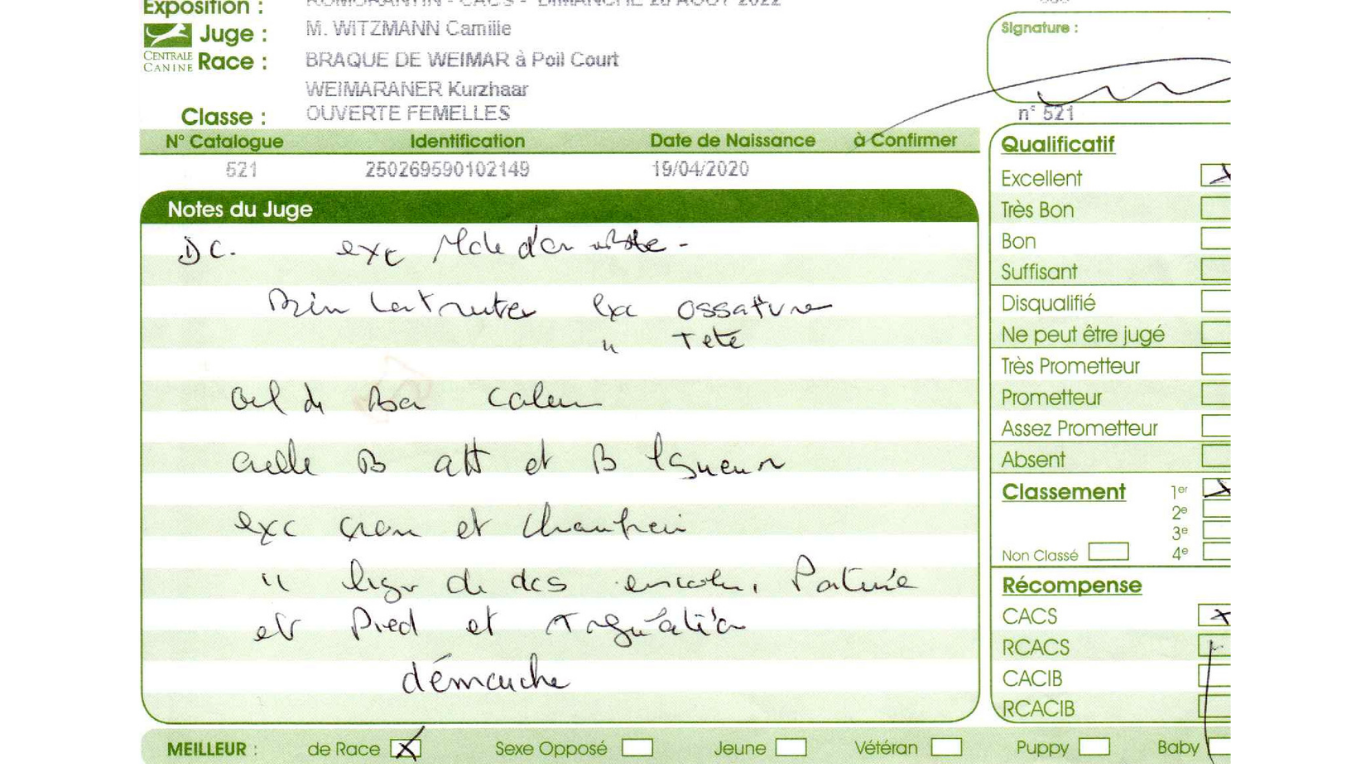 Exposition : ROMORANTIN - CACS - DIMANCHE 28 AOUT 2022
Juge : M. WITZMANN Camille
CENTRALE CANINE
Race : BRAQUE DE WEIMAR à Poil Court
WEIMARANER Kurzhaar
Classe : OUVERTE FEMELLES
Signature :
n° 521
N° Catalogue Identification Date de Naissance à Confirmer
521 250269590102149 19/04/2020
Notes du Juge
DC. exc
Bien exc ossature
" Tete
Œil de Bon
oreille B att et B
exc et chanfrein
" de dos Poitrine
Pied et
démarche
Qualificatif
Excellent X
Très Bon
Bon
Suffisant
Disqualifié
Ne peut être jugé
Très Prometteur
Prometteur
Assez Prometteur
Absent
Classement 1er X
2e
3e
Non Classé 4e
Récompense
CACS X
RCACS
CACIB
RCACIB
MEILLEUR : de Race X Sexe Opposé Jeune Vétéran Puppy Baby